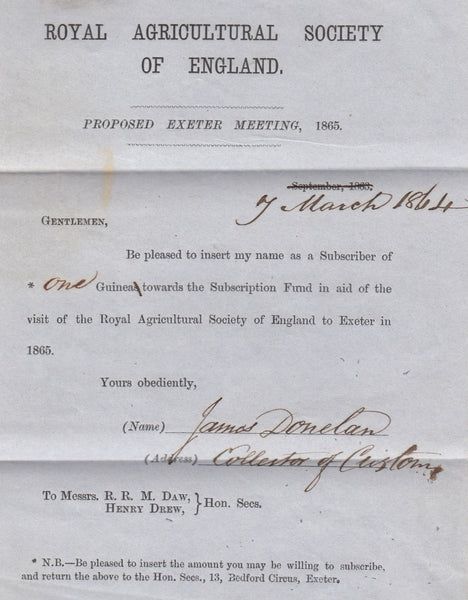 ROYAL AGRICULTURAL SOCIETY
OF ENGLAND.
PROPOSED EXETER MEETING, 1865.
September, 1863.
7 March 1864
GENTLEMEN,
Be pleased to insert my name as a Subscriber of
* one Guineas towards the Subscription Fund in aid of the
visit of the Royal Agricultural Society of England to Exeter in
1865.
Yours obediently,
(Name) James Donelan
(Address) Collector of Customs
To Messrs. R. R. M. DAW,
HENRY DREW, } Hon. Secs.
* N.B.—Be pleased to insert the amount you may be willing to subscribe,
and return the above to the Hon. Secs., 13, Bedford Circus, Exeter.